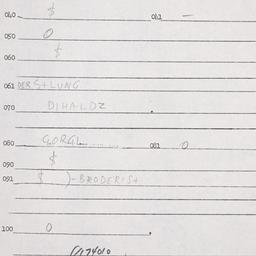 040 $ 041 —
050 0
060 $
061 DER S+LUNG
070 DIHALDZ
080 GORGL 081 0
090 $
091 $ )-BRODERIS+
100 0